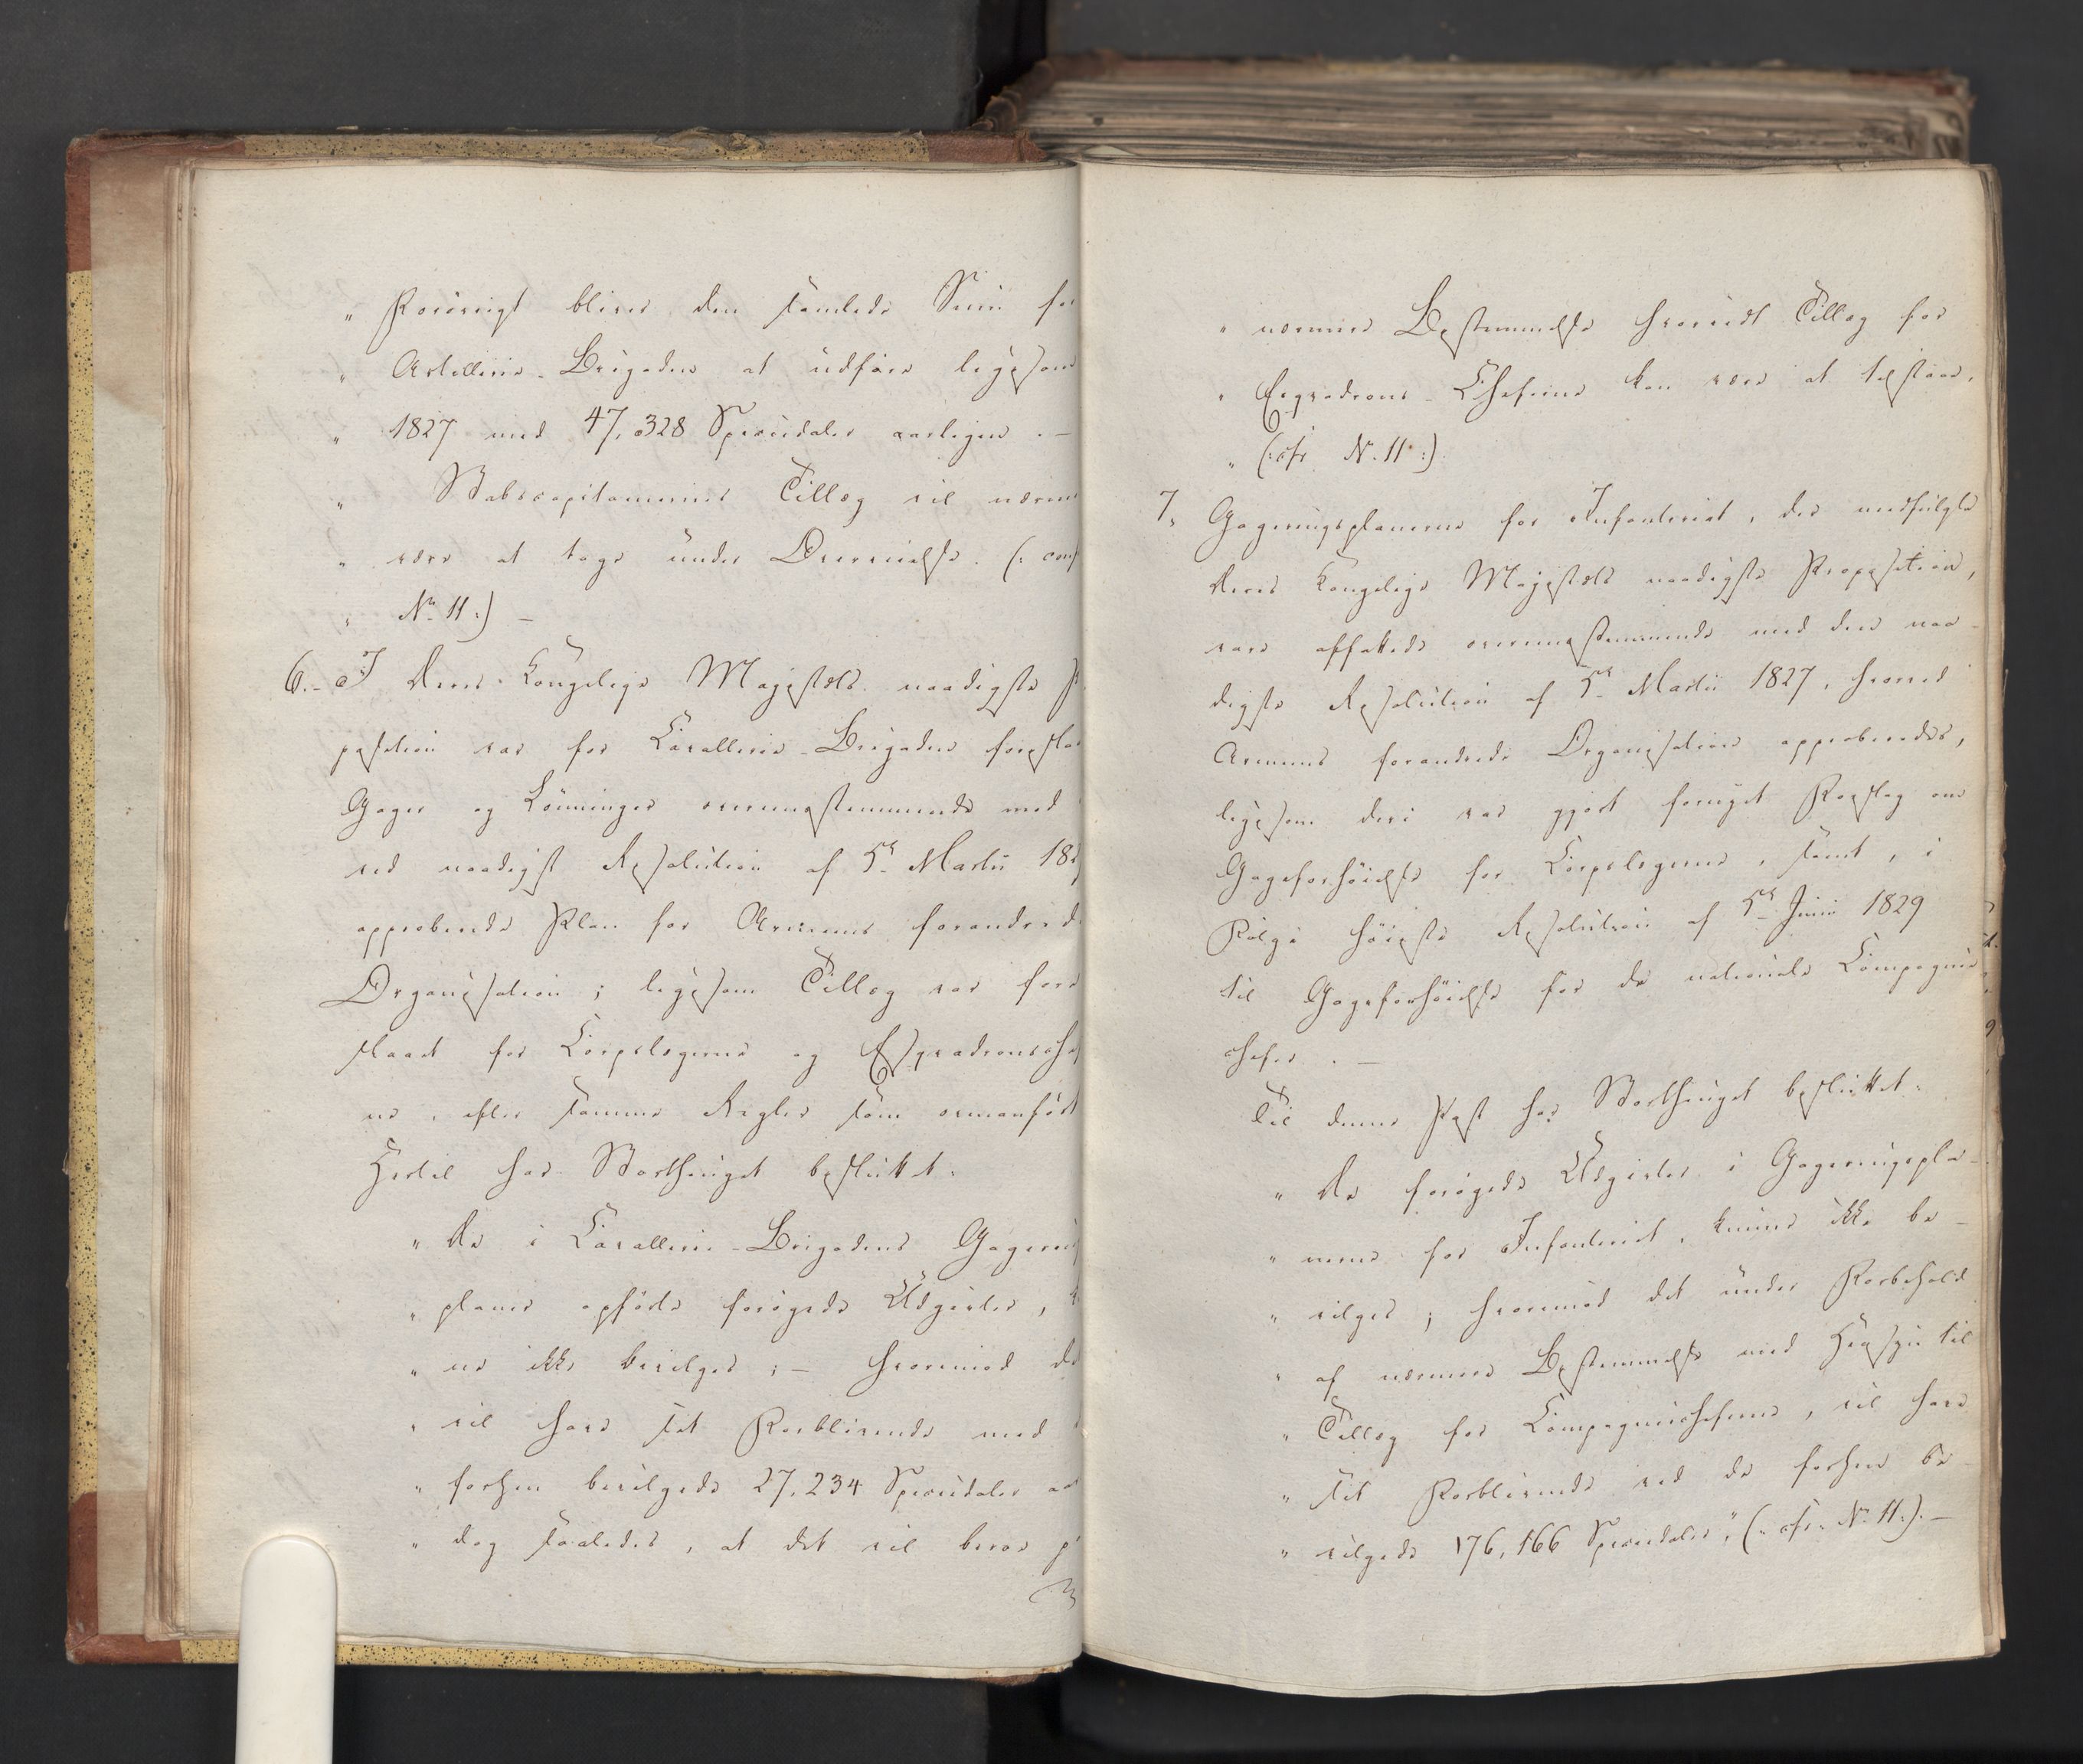 " Forøvrigt bliver den samlede Sum for
" Artillerie-Brigaden at udføre ligesom
" 1827 med 47,328 Speciedaler aarligen. —
" Stabscapitainernes Tillæg vil nærme
" være at tage under Overveielse. (: conf
" No 11:) —
6. - I Deres Kongelige Majestæts naadigste P
position var for Cavallerie-Brigaden foreslaa
Gager og Lønninger overeensstemmende med
ved naadigst Resolution af 5te Martii 182
approberede Plan for Armeens forandrede
Organisation; ligesom Tillæg var fore
slaaet for Corpslægerne og Esqvadronsche
ne, efter samme Regler som ovenanført
Hertil har Storthinget besluttet:
" De i Cavallerie-Brigadens Gagerings
" planer opførte forøgede Udgivter, k
" ne ikke bevilges; — hvorimod de
" vil have sit Forblivende med
" forhen bevilgede 27,234 Speciedaler aar
" dog saaledes, at det vil beroe p
" nærmere Bestemmelse hvorvidt Tillæg for
" Esqvadrons-Cheferne kan være at tilstaae.
" (: cfr No. 11:)
7. Gageringsplanerne for Infanteriet, der medfulgte
Deres Kongelige Majestæts naadigste Proposition,
vare affattede overeensstemmende med den naa-
digste Resolution af 5te Martii 1827, hvorved
Armeens forandrede Organisation approberedes,
ligesom deri var gjort fornyet Forslag om
Gageforhøielse for Corpslægerne, samt, i
Følge høieste Resolution af 5te Junii 1829
til Gageforhøielse for de nationale Compagnie
chefer. —
Til denne Post har Storthinget besluttet:
" De forøgede Udgivter i Gageringspla-
" nerne for Infanteriet, kunne ikke be-
" vilges; hvorimod det under Forbehold
" af nærmere Bestemmelse med Hensyn til
" Tillæg for Compagniecheferne, vil have
" sit Forblivende ved de forhen be-
" vilgede 176,166 Speciedaler," (: cfr. No 11:). —